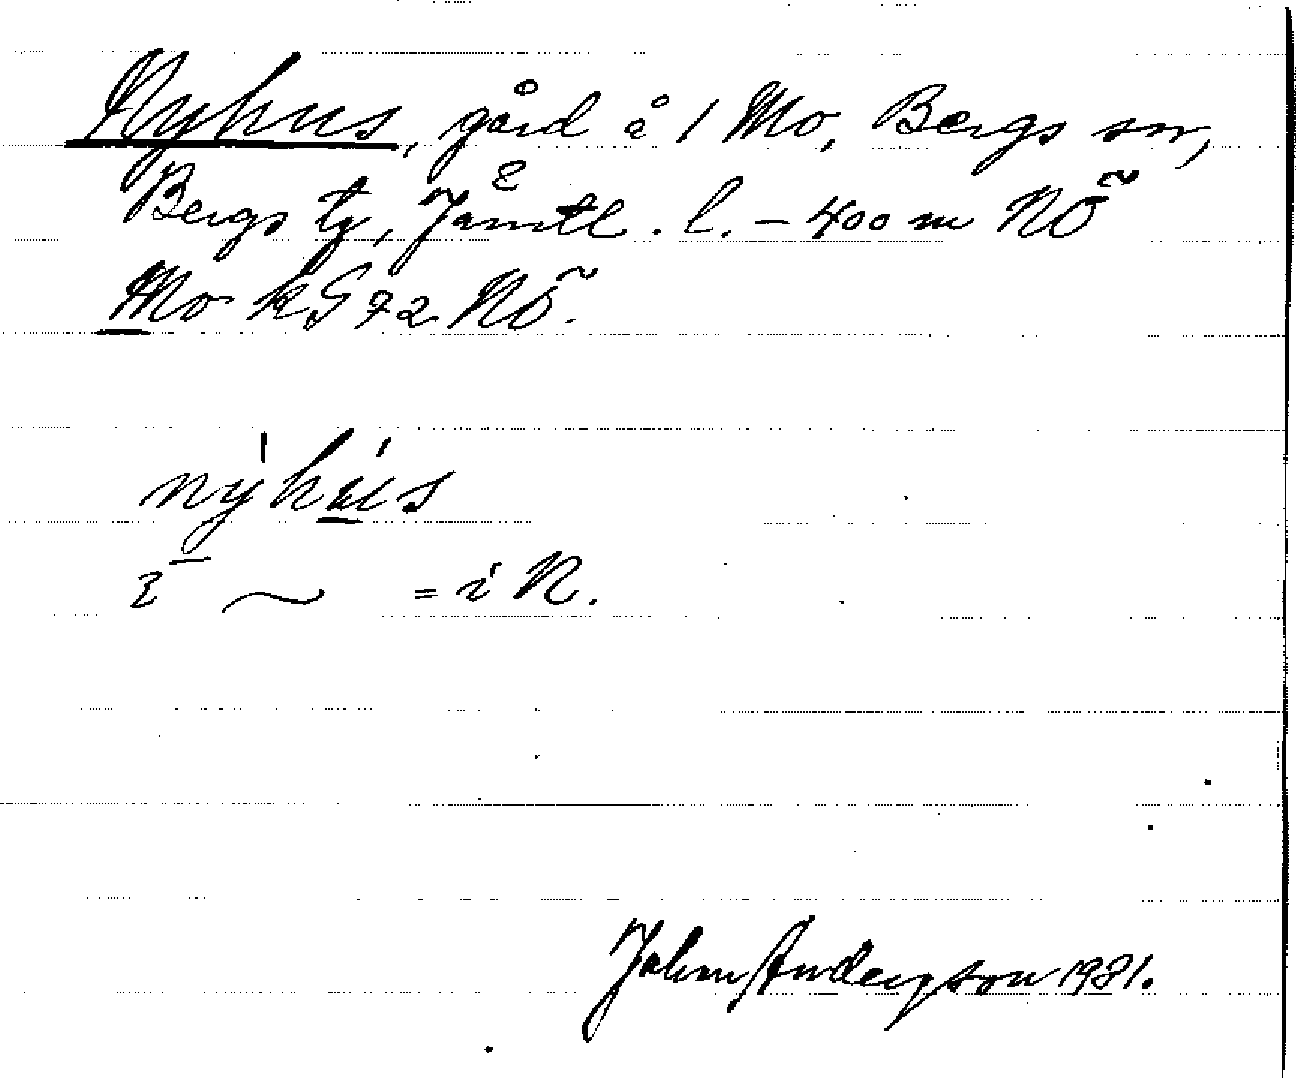 Nyhus, gård å 1 Mo, Bergs sn,
Bergs tg, Jämtl. l. – 400 m NÖ
Mo k G 72 NÖ.
nýhús
ɩ ~ = i N.
Johan Andersson 1981.